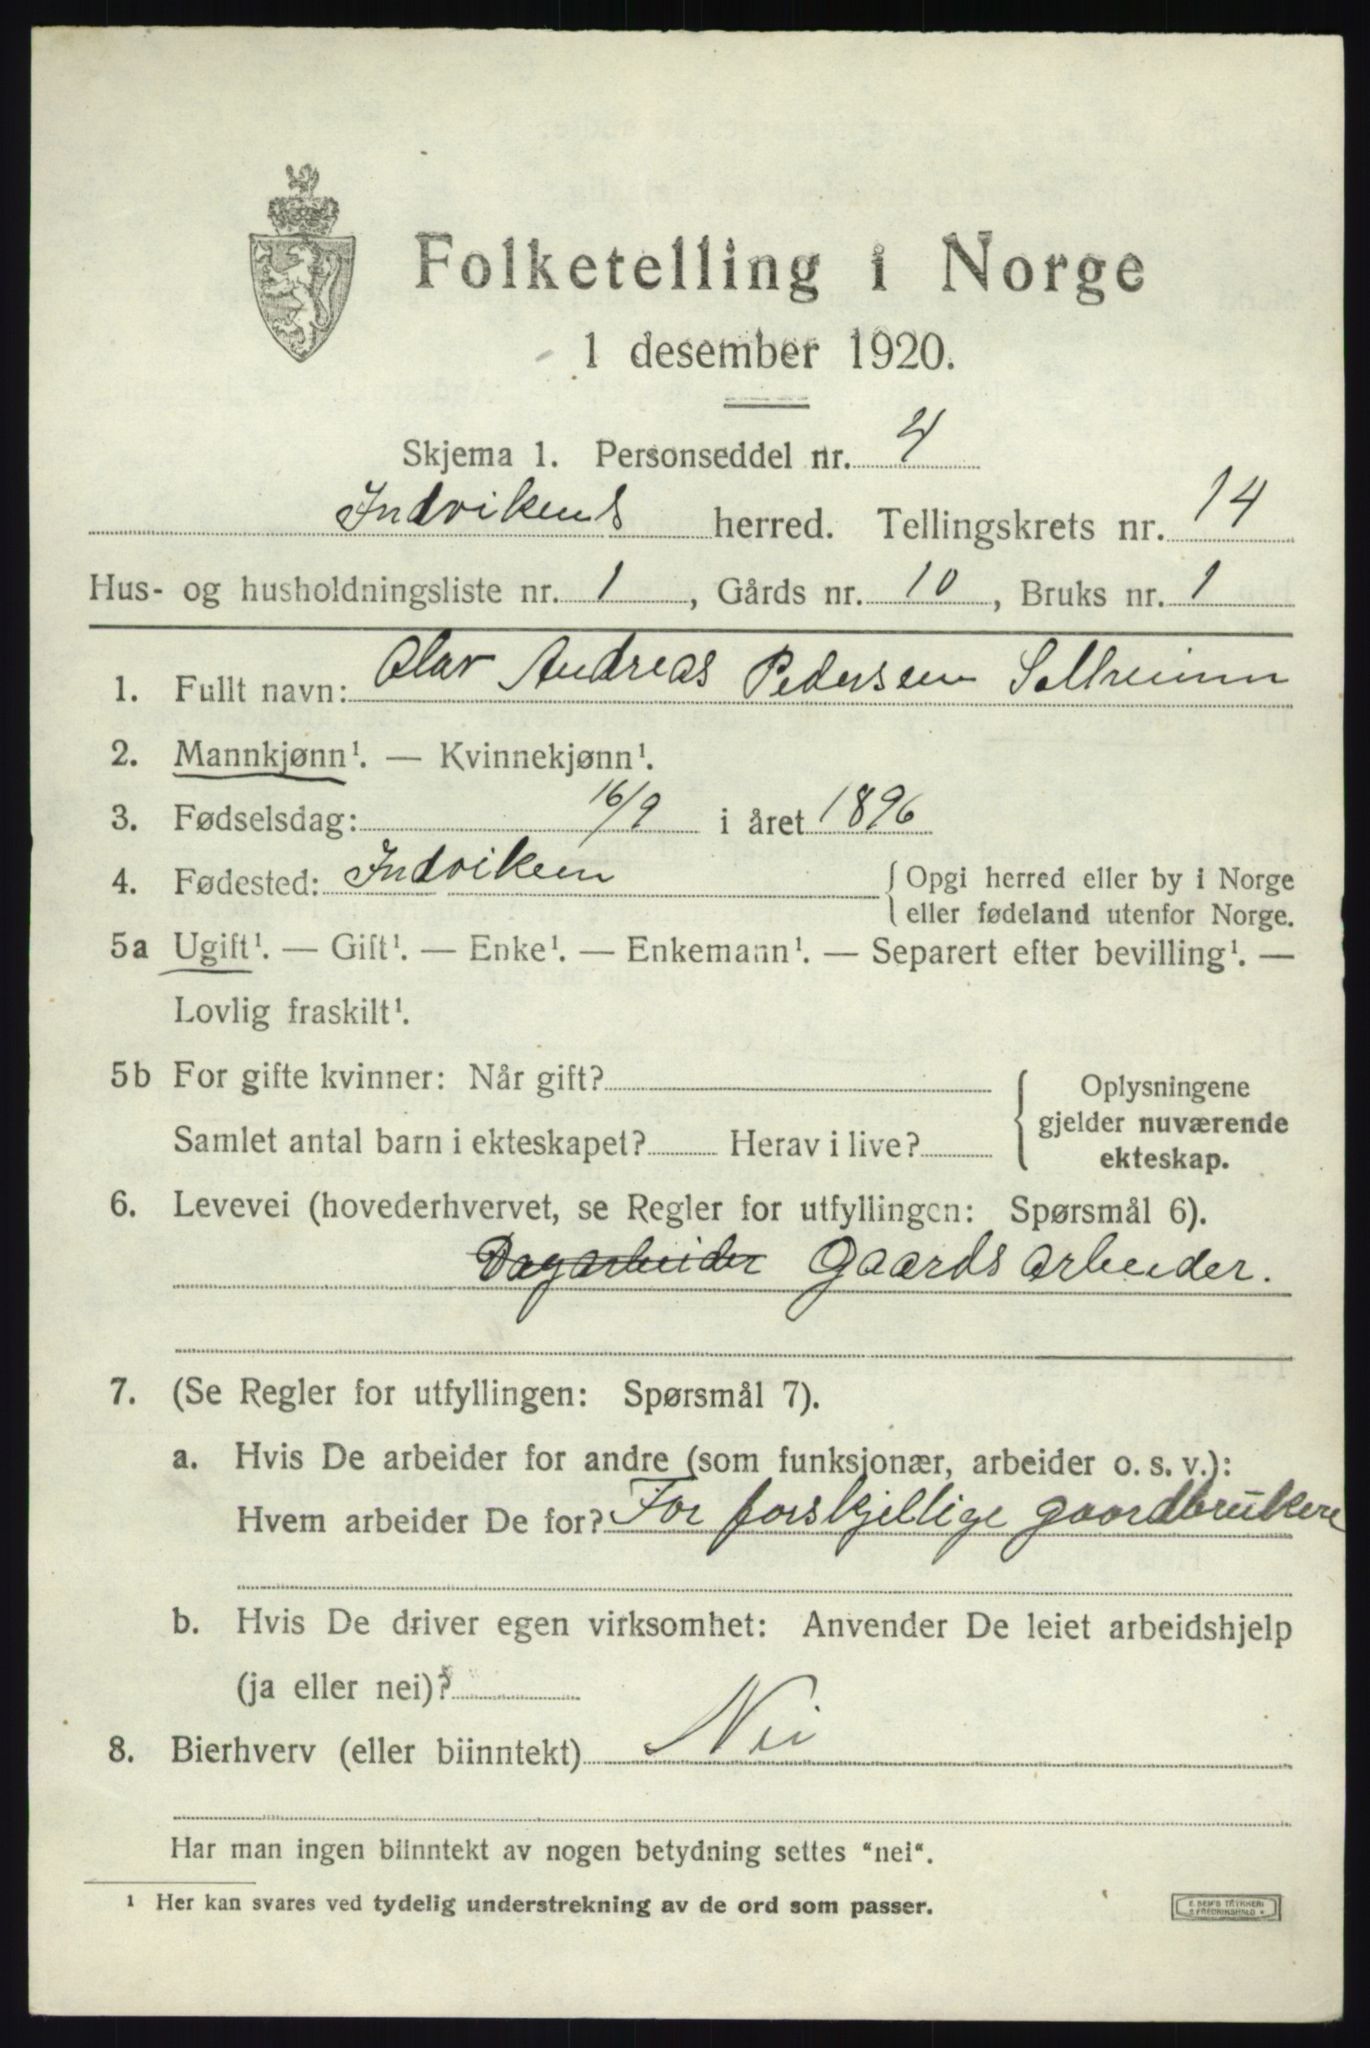 Folketelling i Norge
1 desember 1920.
Skjema 1. Personseddel nr. 4
Indvikens herred. Tellingskrets nr. 14
Hus- og husholdningsliste nr. 1, Gårds nr. 10, Bruks nr. 1
1. Fullt navn: Olav Andreas Pedersen Solheimm
2. Mannkjønn¹. — Kvinnekjønn¹.
3. Fødselsdag: 16/9 i året 1896
4. Fødested: Indviken { Opgi herred eller by i Norge
eller fødeland utenfor Norge.
5a Ugift¹. — Gift¹. — Enke¹. — Enkemann¹. — Separert efter bevilling¹. —
Lovlig fraskilt¹.
5b For gifte kvinner: Når gift? { Oplysningene
gjelder nuværende
Samlet antal barn i ekteskapet? Herav i live?
ekteskap.
6. Levevei (hovederhvervet, se Regler for utfyllingen: Spørsmål 6).
Dagarbeider Gaardsarbeider.
7. (Se Regler for utfyllingen: Spørsmål 7).
a. Hvis De arbeider for andre (som funksjonær, arbeider o. s. v.):
Hvem arbeider De for? For forskjellige gaardbrukere
b. Hvis De driver egen virksomhet: Anvender De leiet arbeidshjelp
(ja eller nei)?
8. Bierhverv (eller biinntekt) Nei
Har man ingen biinntekt av nogen betydning settes "nei".
¹ Her kan svares ved tydelig understrekning av de ord som passer.